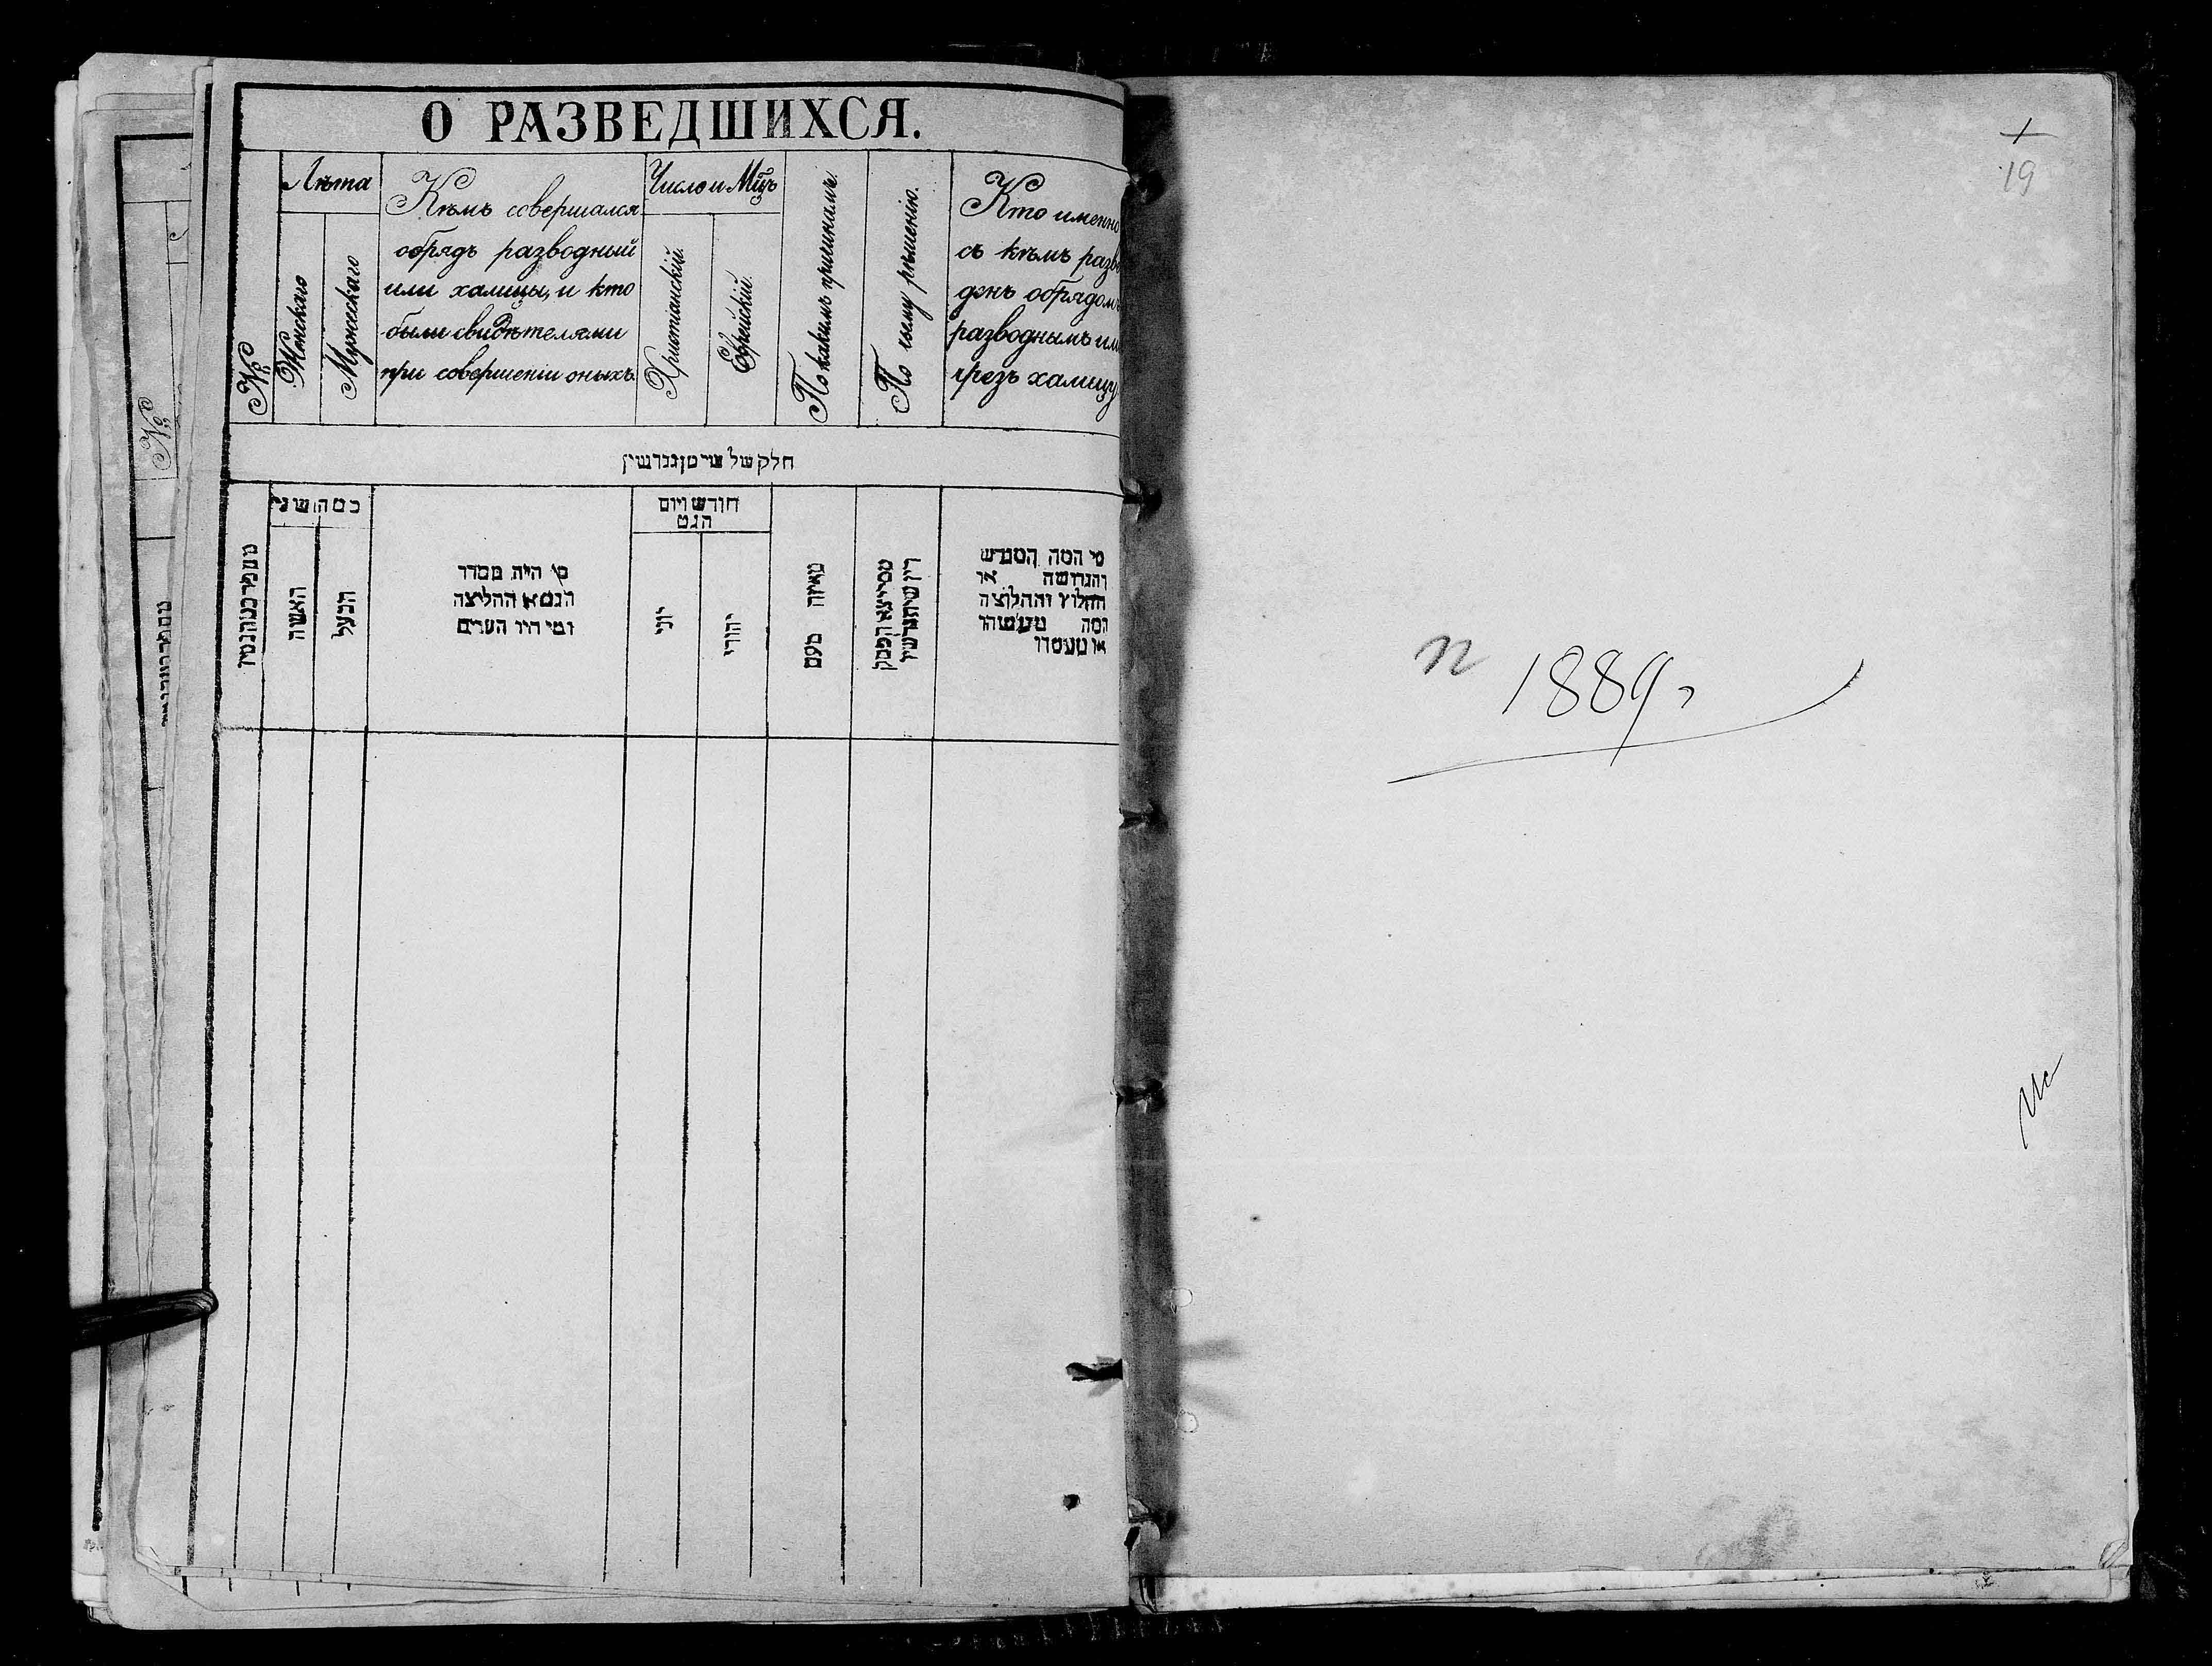 О РАЗВЕДШИХСЯ.
№
Лѣта
Женскаго
Мужескаго
Кѣмъ совершался
обрядъ разводный
или халицы, и кто
были свидѣтелями
при совершеніи оныхъ.
Число и Мцъ
Христіанскій.
Еврейскій.
По какимъ причинамъ.
По чьему рѣшенію.
Кто именно
съ кѣмъ разве
денъ обрядомъ
разводнымъ или
чрезъ халицу
חלק של
כמה שני
האשה
הבעל
מי היה מסדר
הגט או החליצה
ומי היו העדים
חודש ויום
הגט
יוני
יהודי
מאיזה טעם
מי המה המגרש
והגרושה או
החולץ והחלוצה
ומה
№
19
1889 г